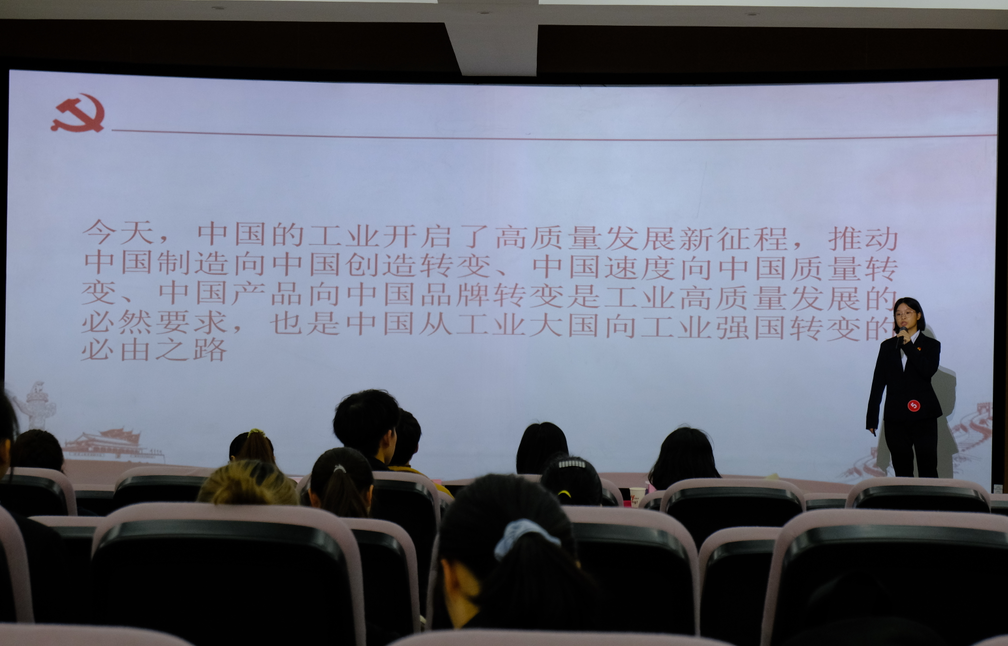 今天，中国的工业开启了高质量发展新征程，推动
中国制造向中国创造转变、中国速度向中国质量转
变、中国产品向中国品牌转变是工业高质量发展的
必然要求，也是中国从工业大国向工业强国转变的
必由之路